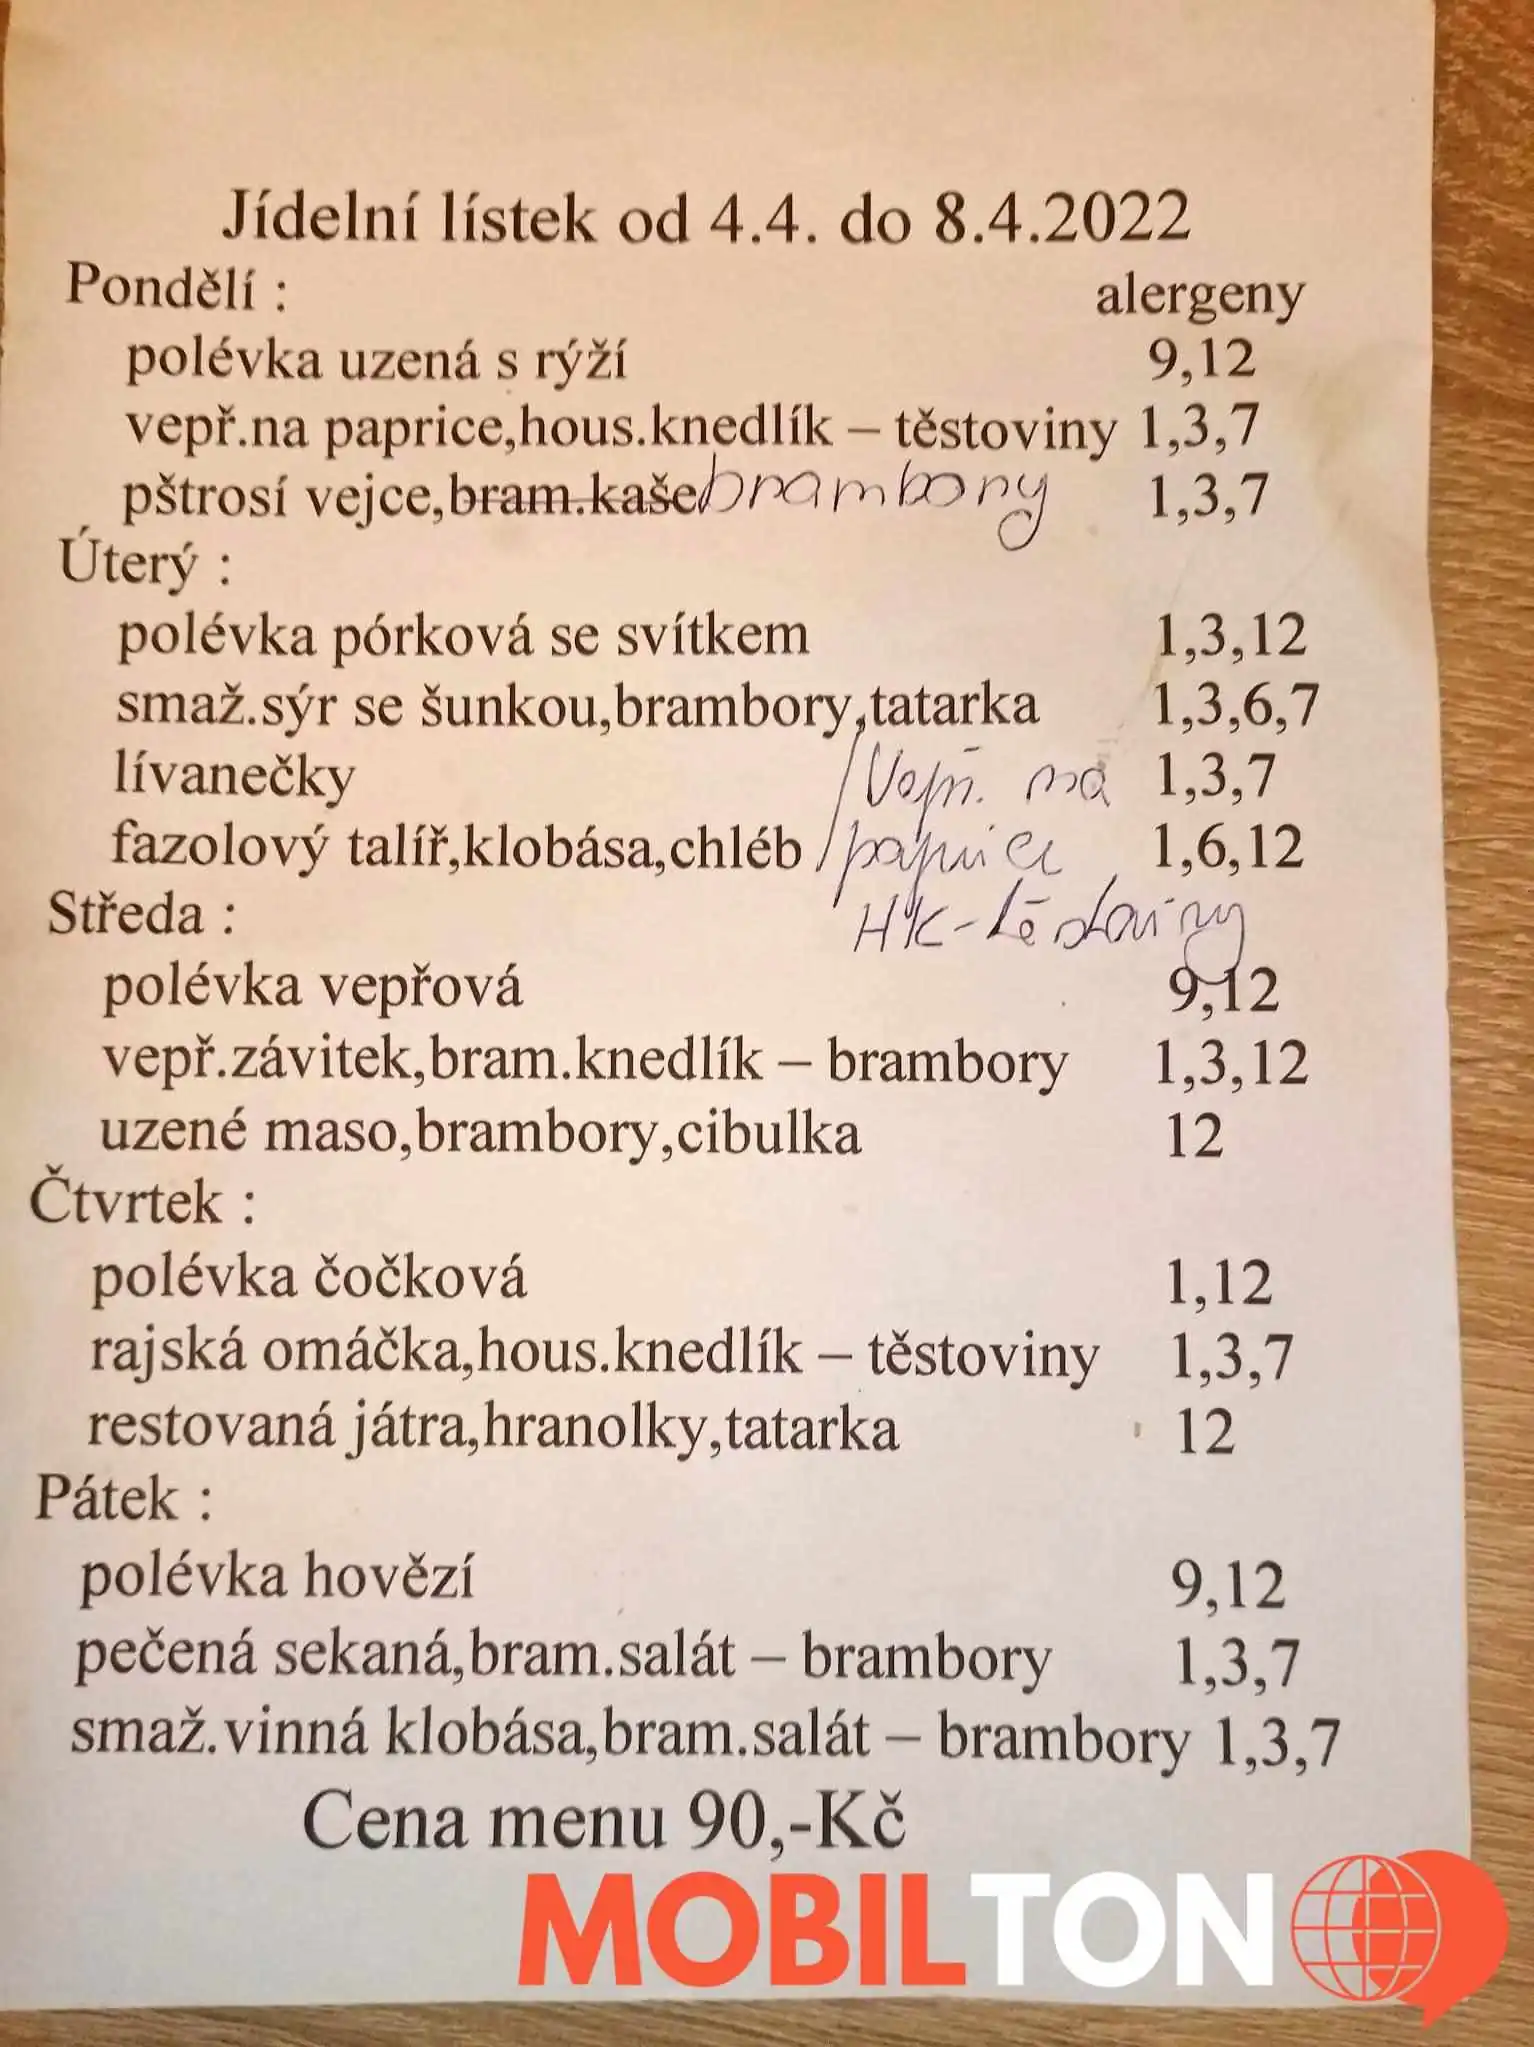 Jídelní lístek od 4.4. do 8.4.2022
Pondělí : alergeny
polévka uzená s rýží 9,12
vepř.na paprice,hous.knedlík – těstoviny 1,3,7
pštrosí vejce,bram.kaše brambory 1,3,7
Úterý :
polévka pórková se svítkem 1,3,12
smaž.sýr se šunkou,brambory,tatarka 1,3,6,7
lívanečky /Vepř. na 1,3,7
fazolový talíř,klobása,chléb /paprice 1,6,12
Středa : HK-těstoviny
polévka vepřová 9,12
vepř.závitek,bram.knedlík – brambory 1,3,12
uzené maso,brambory,cibulka 12
Čtvrtek :
polévka čočková 1,12
rajská omáčka,hous.knedlík – těstoviny 1,3,7
restovaná játra,hranolky,tatarka 12
Pátek :
polévka hovězí 9,12
pečená sekaná,bram.salát – brambory 1,3,7
smaž.vinná klobása,bram.salát – brambory 1,3,7
Cena menu 90,-Kč
MOBILTON